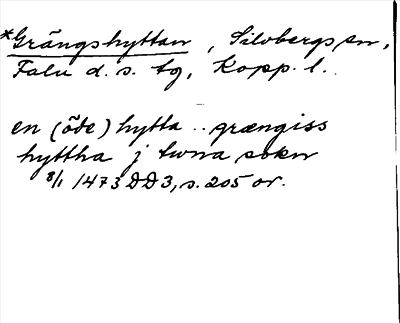 *Grängshyttan, Silvbergs sn,
Falu d. s. tg, Kopp. l.
en (öde) hytta .. grængiss
hyttha j twna sokn
8/1 1473 DD3, s. 205 or.